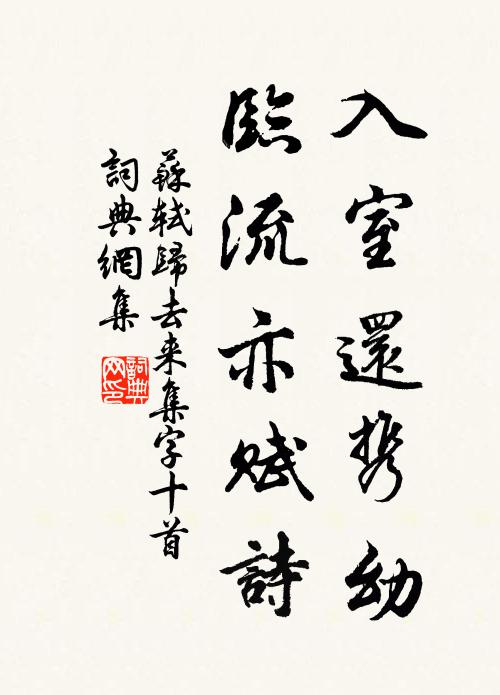 入室還携幼
臨流亦賦詩
蘇軾歸去来集字十首
詞典網集
詞典網印